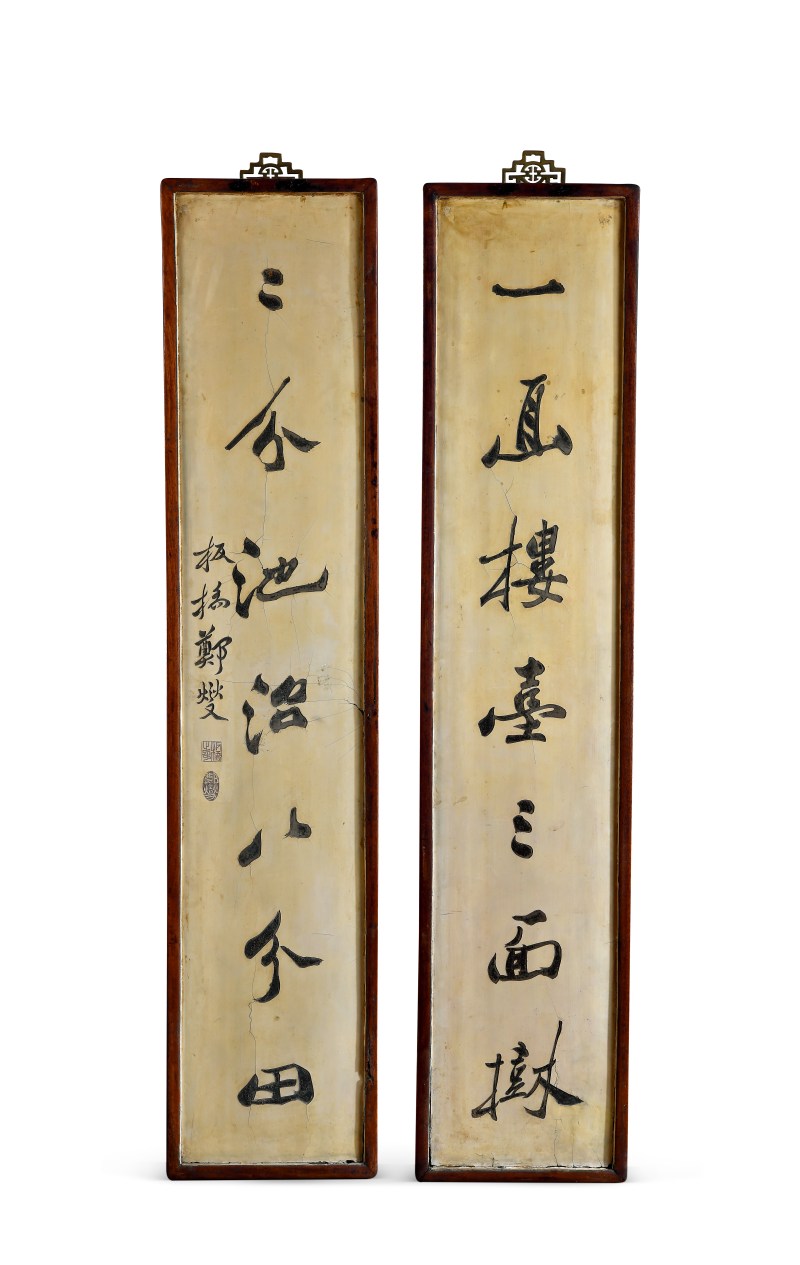 一直樓臺三面樹
二分池沼八分田
板橋鄭燮